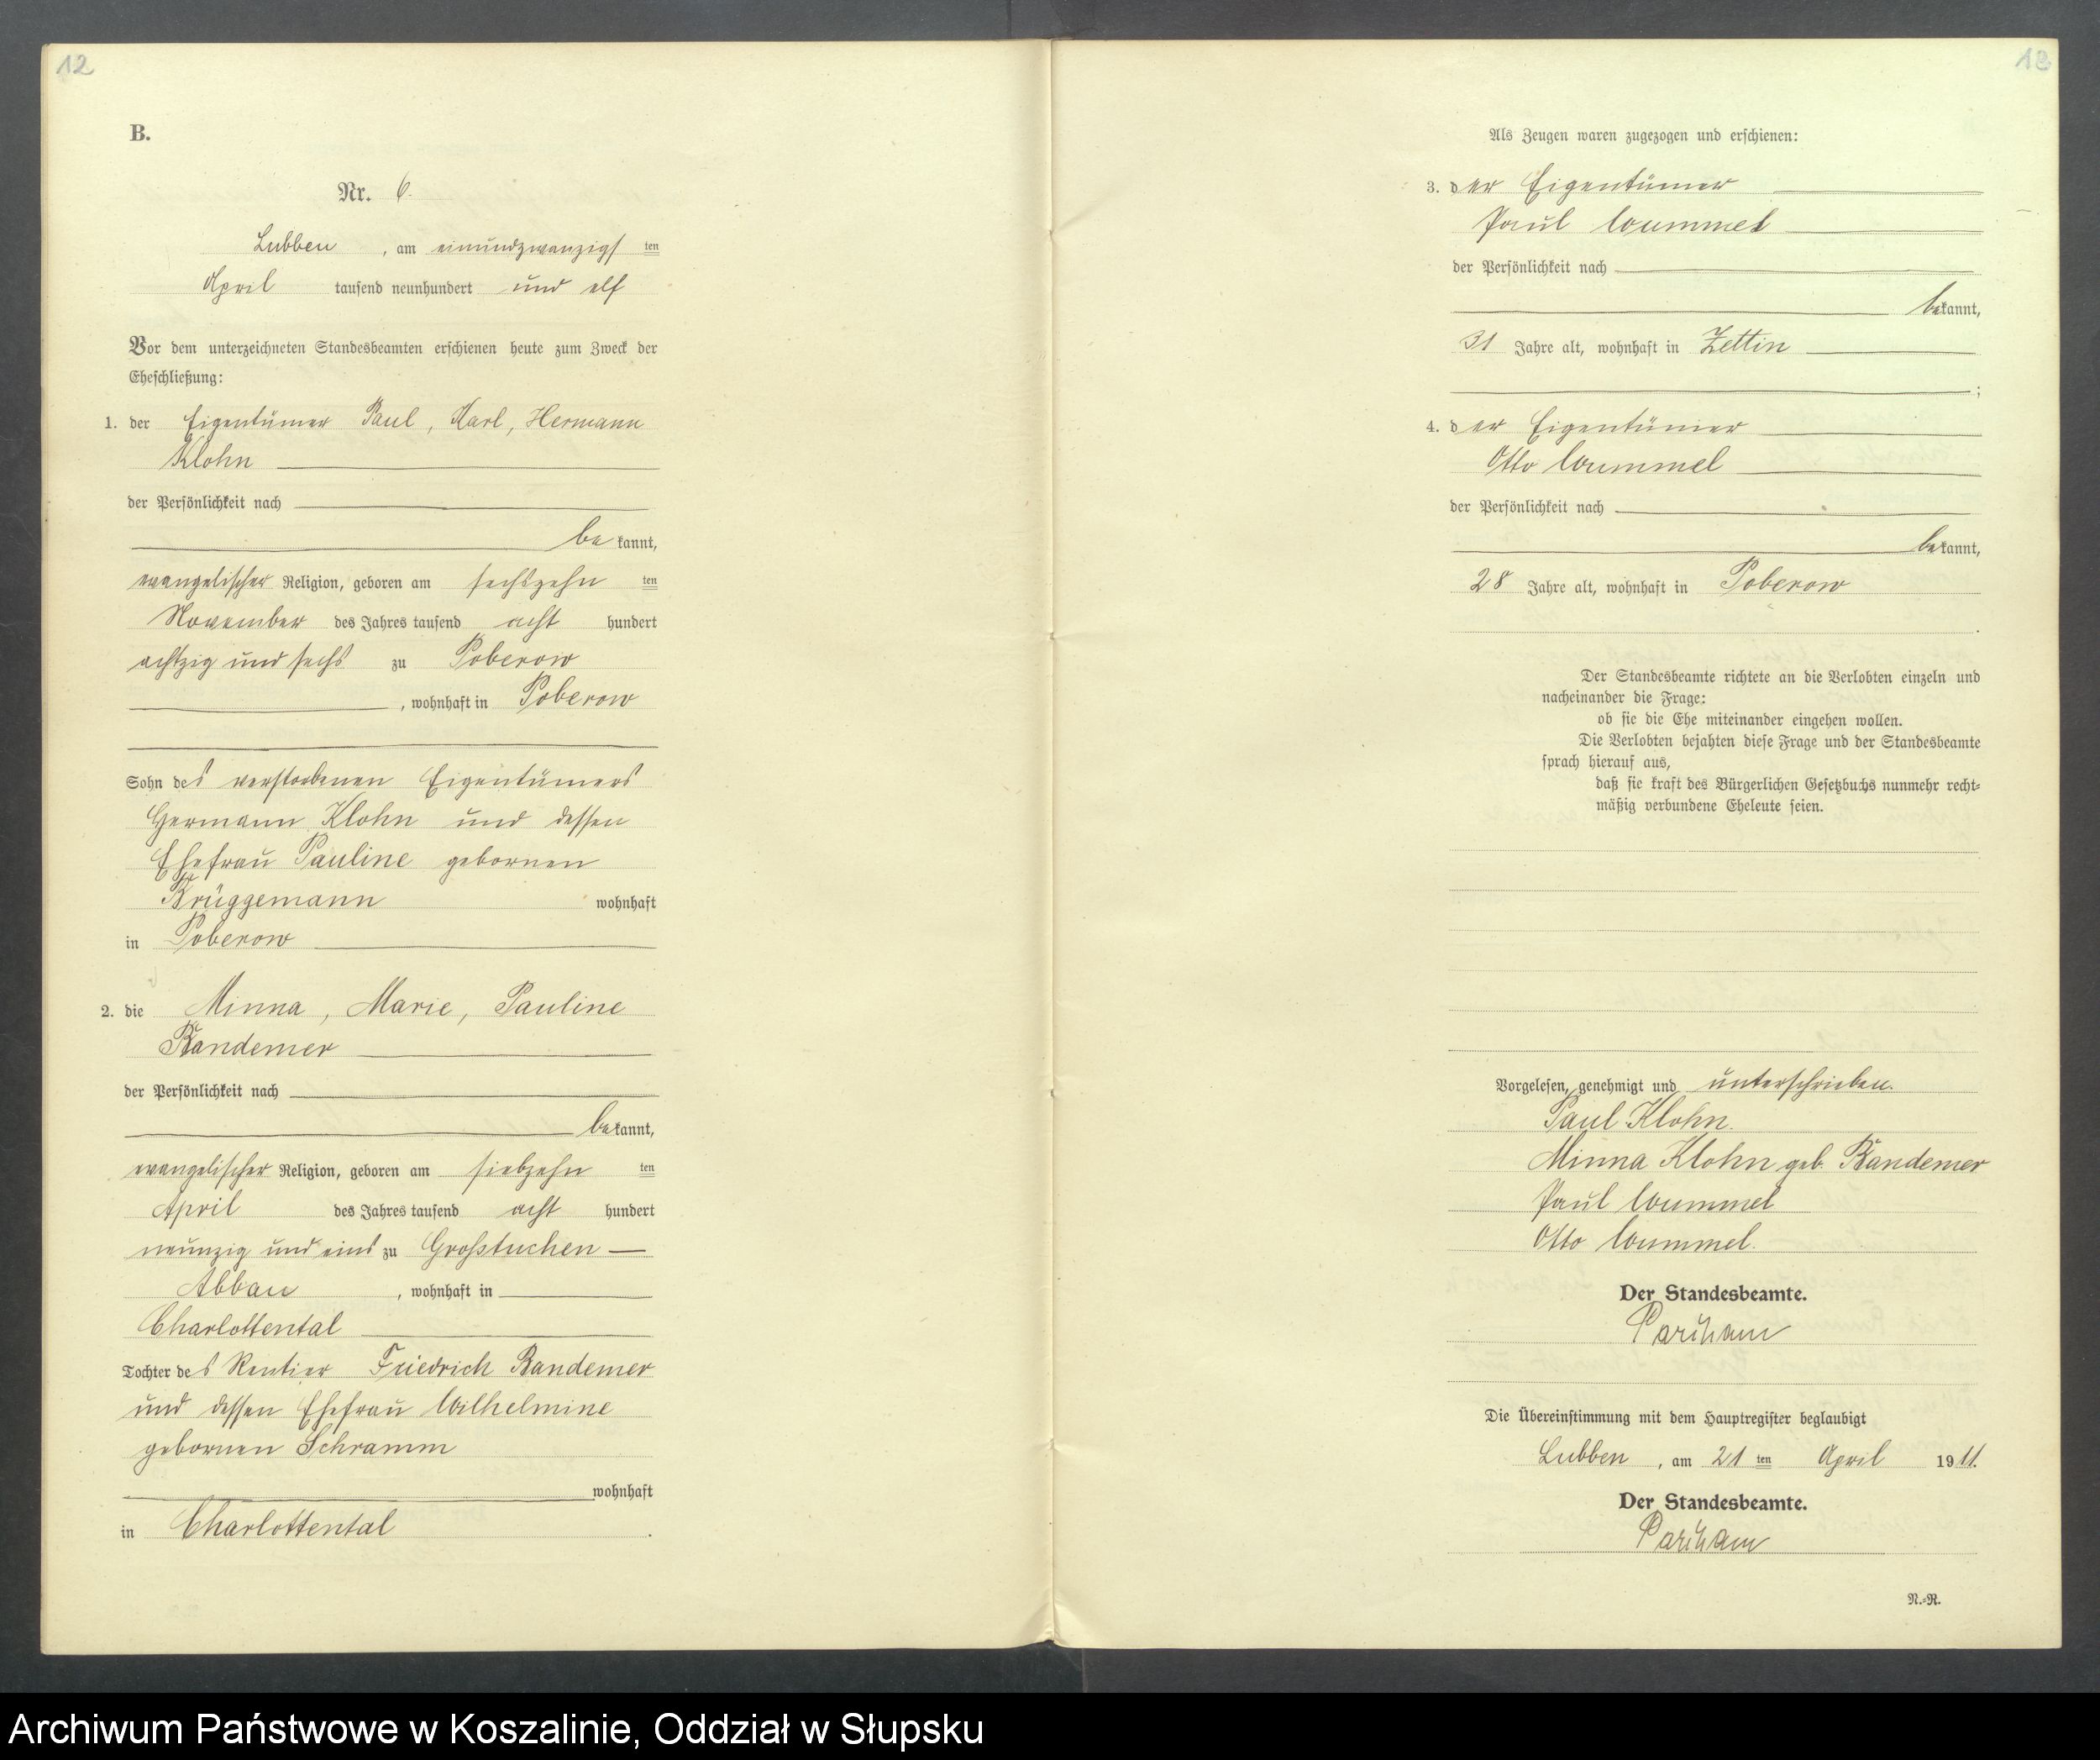 12
B.
Nr. 6.
Lubben, am einundzwanzigsten
April tausend neunhundert und elf
Vor dem unterzeichneten Standesbeamten erschienen heute zum Zweck der
Eheschließung:
1. der Eigentümer Paul, Karl, Hermann
Klohn
der Persönlichkeit nach
bekannt,
evangelischer Religion, geboren am sechszehnten
November des Jahres tausend acht hundert
achtzig und sechs zu Poberow
, wohnhaft in Poberow
Sohn des verstorbenen Eigentümers
Hermann Klohn und dessen
Ehefrau Pauline gebornen
Brüggemann wohnhaft
in Poberow
2. die Minna, Marie, Pauline
Bandemer
der Persönlichkeit nach
bekannt,
evangelischer Religion, geboren am siebzehnten
April des Jahres tausend acht hundert
neunzig und eins zu Großtuchen —
Abbau, wohnhaft in
Charlottental
Tochter des Rentier Friedrich Bandemer
und dessen Ehefrau Wilhelmine
gebornen Schramm
wohnhaft
in Charlottental.
13
Als Zeugen waren zugezogen und erschienen:
3. der Eigentümer
Paul Wummel
der Persönlichkeit nach
bekannt,
31 Jahre alt, wohnhaft in Zettin
;
4. der Eigentümer
Otto Wummel
der Persönlichkeit nach
bekannt,
28 Jahre alt, wohnhaft in Poberow
.
Der Standesbeamte richtete an die Verlobten einzeln und
nacheinander die Frage:
ob sie die Ehe miteinander eingehen wollen.
Die Verlobten bejahten diese Frage und der Standesbeamte
sprach hierauf aus,
daß sie kraft des Bürgerlichen Gesetzbuchs nunmehr recht-
mäßig verbundene Eheleute seien.
Vorgelesen, genehmigt und unterschrieben.
Paul Klohn.
Minna Klohn geb. Bandemer
Paul Wummel
Otto Wummel.
Der Standesbeamte.
Die Übereinstimmung mit dem Hauptregister beglaubigt
Lubben, am 21ten April 1911.
Der Standesbeamte.
N.-R.
Archiwum Państwowe w Koszalinie, Oddział w Słupsku